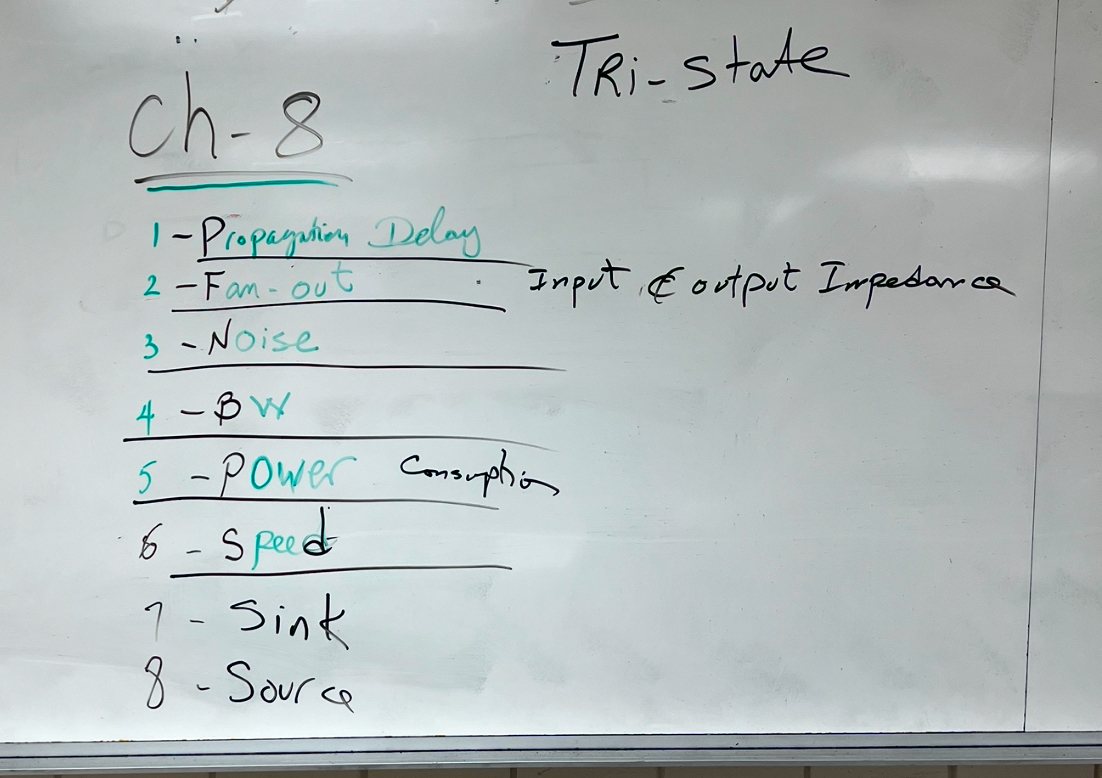 TRi-state
Ch-8
1 - Propagation Delay
2 - Fan-out Input & output Impedance
3 - Noise
4 - BW
5 - Power Consuption
6 - Speed
7 - Sink
8 - Source